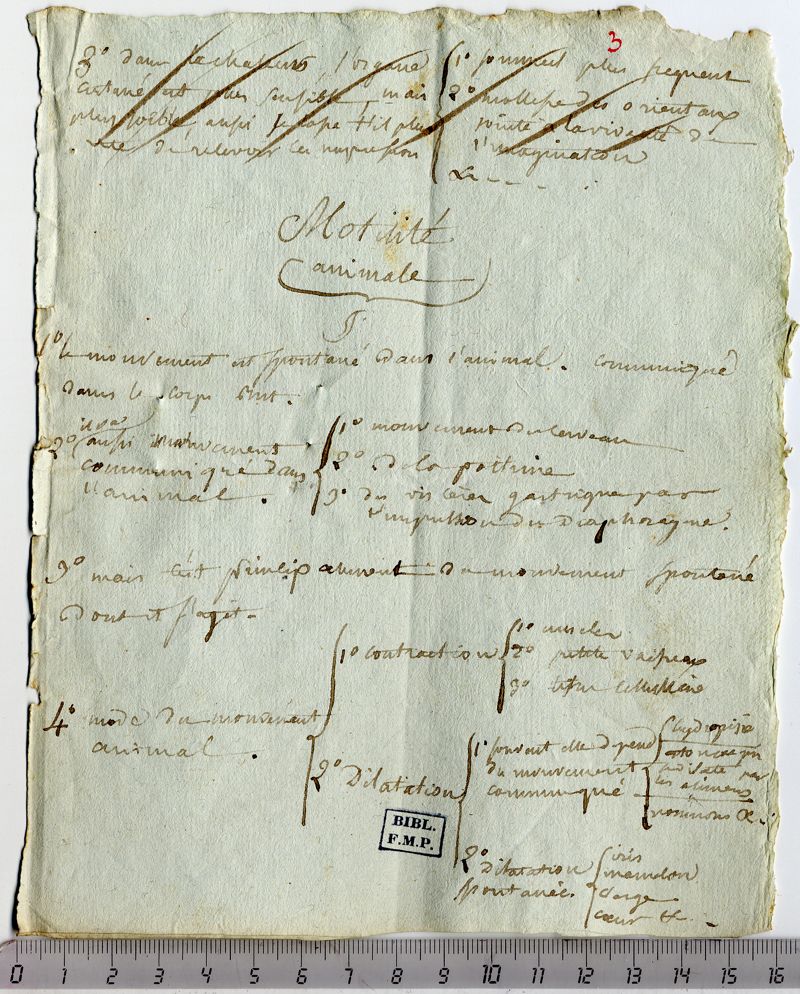 3
3° dans les chaleurs l'organe
cutané est plus sensible, mais
plus foible, aussi se lasse t-il plus
vite de recevoir les impression
1° sommeil plus frequent
2° mollesse des orientaux
jointe à la vivacité de
l'imagination
&c - - - .
Motilité
animale
1° le mouvement est spontané dans l'animal. communiqué
dans le corps brut.
2° il y a
aussi mouvement
communiqué dans
l'animal.
1° mouvement du cerveau
2° de la poitrine
3° des viscères gastrique par
l'impulsion du diaphragme.
3° mais c'est principalement du mouvement spontané
dont il s'agit.
4° mode du mouvement
animal.
1° contraction
1° muscles
2° petits vaisseaux
3° tissu cellulaire
2° Dilatation
1° souvent elle depend
du mouvement
communiqué
hydropisie
estomac
dilaté par
les alimens
poumons &c.
2° dilatation
spontanée.
iris
mamelon
verge
cœur &c. -
BIBL.
F.M.P.
0 1 2 3 4 5 6 7 8 9 10 11 12 13 14 15 16